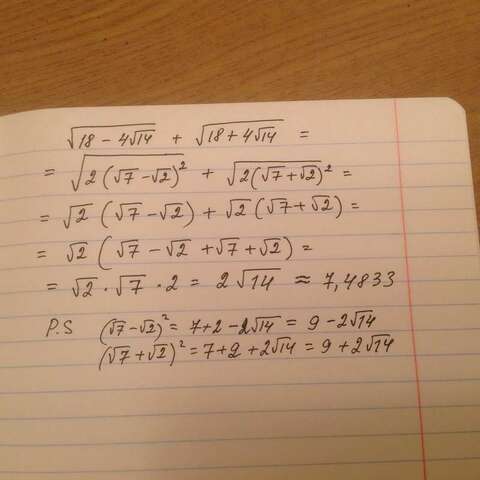 √(18 - 4√14) + √(18 + 4√14) =
= √(2(√7 - √2)²) + √(2(√7 + √2)²) =
= √2 (√7 - √2) + √2 (√7 + √2) =
= √2 (√7 - √2 + √7 + √2) =
= √2 · √7 · 2 = 2√14 ≈ 7,4833
P.S (√7 - √2)² = 7 + 2 - 2√14 = 9 - 2√14
(√7 + √2)² = 7 + 2 + 2√14 = 9 + 2√14